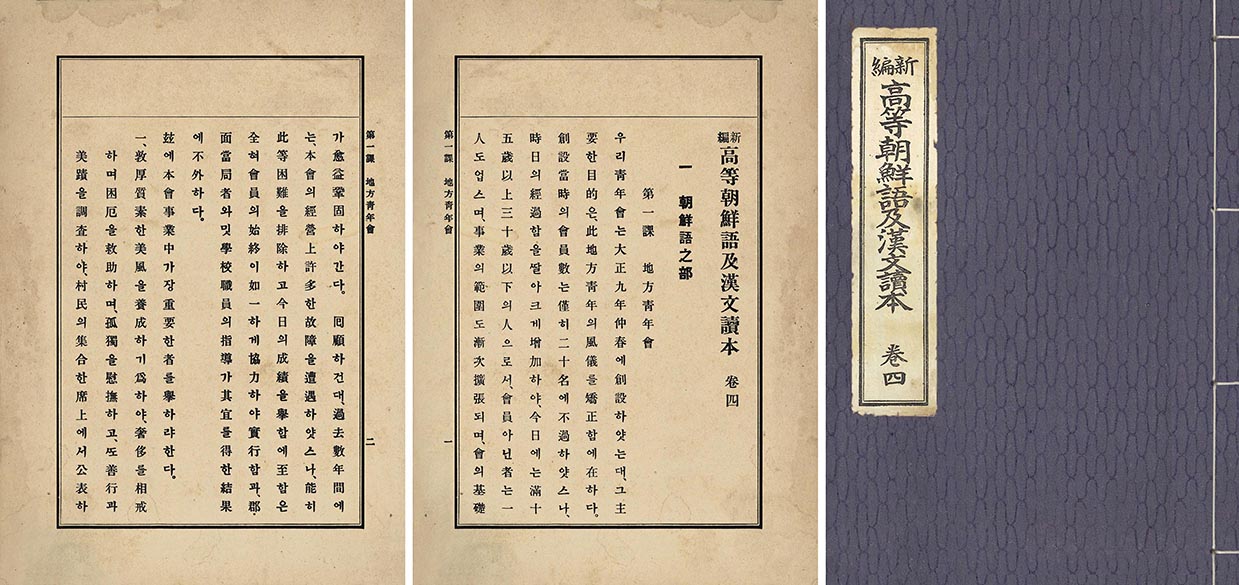 新編 高等朝鮮語及漢文讀本 卷四
新編 高等朝鮮語及漢文讀本 卷四
一 朝鮮語之部
第一課 地方青年會
우리青年會는大正九年仲春에創設하얏는대、그主
要한目的은、此地方青年의風儀를矯正함에在하다。
創設當時의會員數는僅히二十名에不過하얏스나、
時日의經過함을딸아크게增加하야、今日에는滿十
五歲以上三十歲以下의人으로서、會員아닌者는一
人도업스며、事業의範圍도漸次擴張되며、會의基礎
第一課 地方青年會 一
第一課 地方青年會 二
가愈益鞏固하야간다。 回顧하건대、過去數年間에
는、本會의經營上許多한故障을遭遇하얏스나、能히
此等困難을排除하고今日의成績을擧함에至함은
全혀會員의始終이如一하게協力하야實行함과、郡・
面當局者와밋學校職員의指導가其宜를得한結果
에不外하다。
玆에本會事業中가장重要한者를擧하랴한다。
一、敦厚質素한美風을養成하기爲하야、奢侈를相戒
하며困厄을救助하며、孤獨을慰撫하고、또善行과
美蹟을調査하야、村民의集合한席上에서公表하